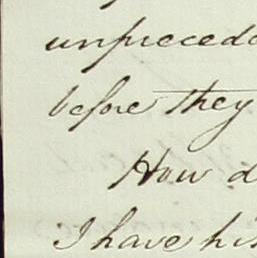 unprecede
before they
How d
I have his